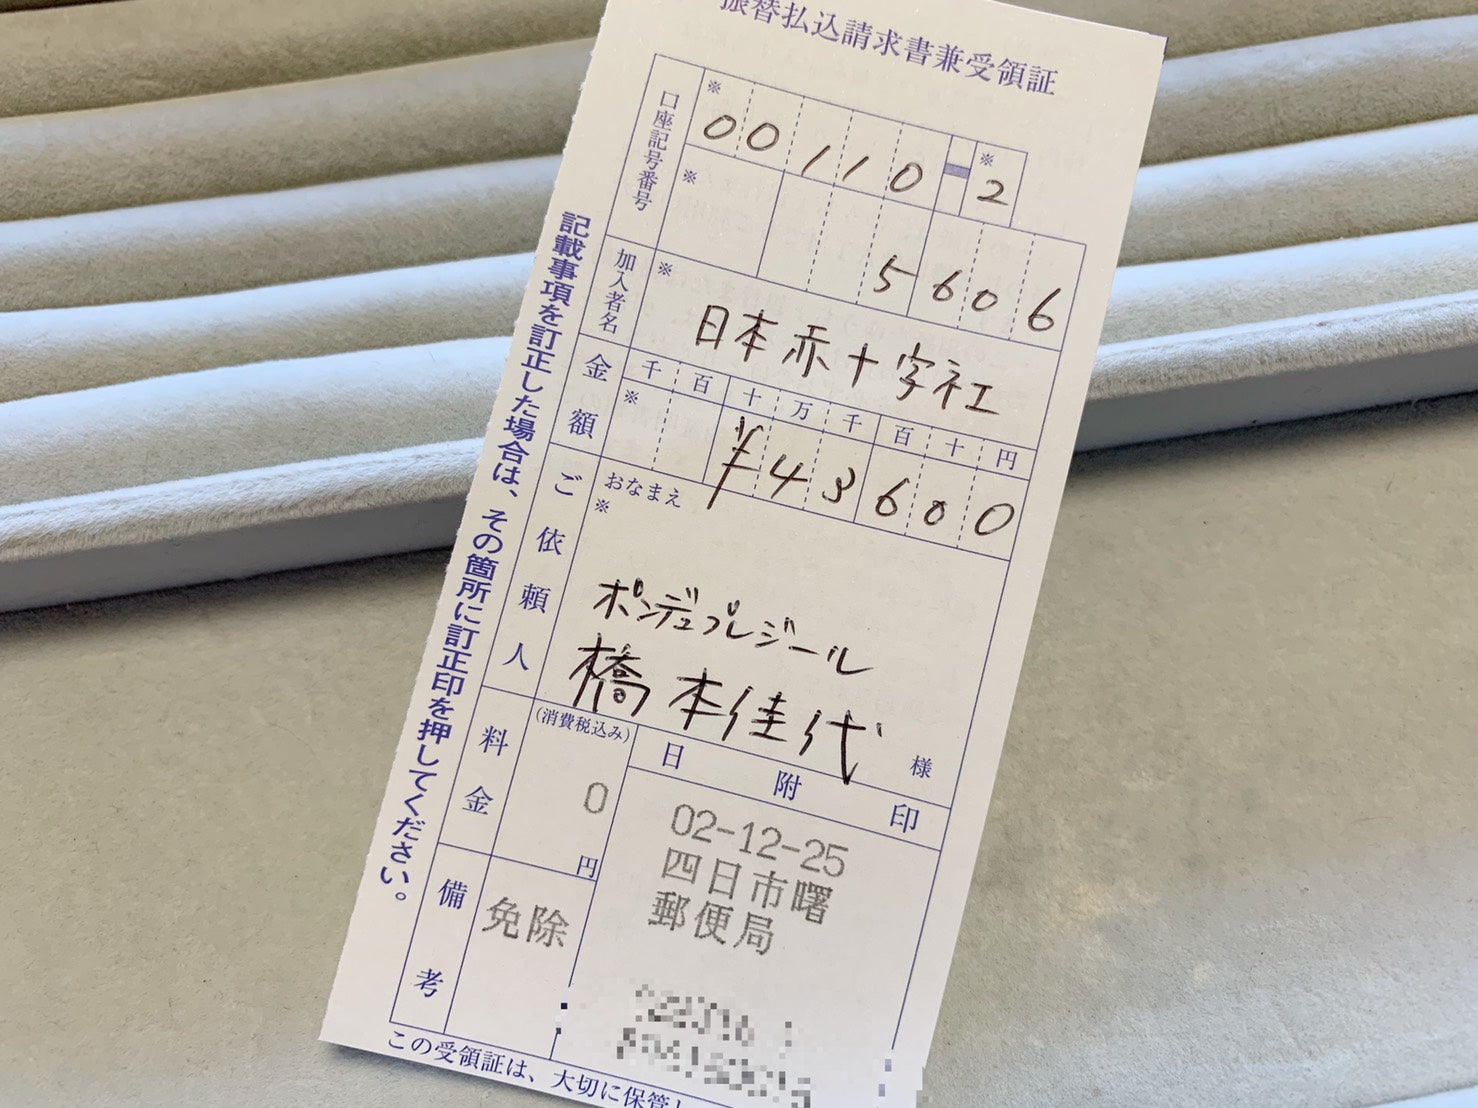 振替払込請求書兼受領証
口座記号番号
※ 00110-※2
※ 5606
加入者名
※ 日本赤十字社
金額
千百十万千百十円
※ ¥43600
ご依頼人
おなまえ
※
ポンデュプレジール
橋本佳代 様
料金
(消費税込み)
0
円
日附印
02-12-25
四日市曙
郵便局
備考
免除
記載事項を訂正した場合は、その箇所に訂正印を押してください。
この受領証は、大切に保管し